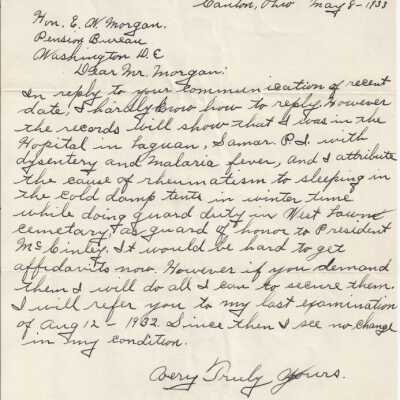 Canton, Ohio May 8-1933
Hon. E. W. Morgan.
Pension Bureau
Washington D.C
Dear Mr. Morgan:
In reply to your communication of recent
date, I hardly know how to reply. However
the records will show that I was in the
Hopital in Laguan, Samar. P.I. with
dysentery and Malaria fever, and I attribute
the cause of rheumatism to sleeping in
the cold damp tents in winter time
while doing guard duty in West Lawn
cemetary, as guard of honor to President
McCinley. It would be hard to get
affidavits now. However if you demand
them I will do all I can to secure them.
I will refer you to my last examination
of Aug 12-1932. Since then I see no change
in my condition.
Very Truly Yours.